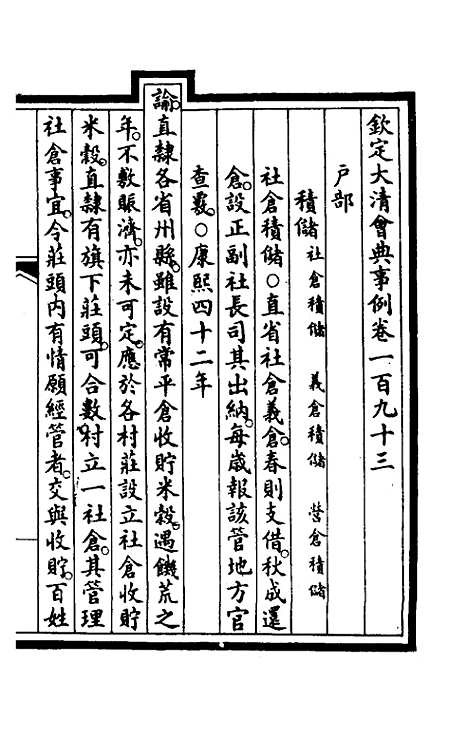 欽定大清會典事例卷一百九十三
戶部
積儲社倉積儲 義倉積儲 營倉積儲
社倉積儲○直省社倉義倉。春則支借。秋成還
倉。設正副社長司其出納。每歲報該管地方官
查覈。○康熙四十二年
諭。直隸各省州縣。雖設有常平倉收貯米穀。遇饑荒之
年。不敷賑濟。亦未可定。應於各村莊設立社倉收貯
米穀。直隸有旗下莊頭。可合數村立一社倉。其管理
社倉事宜。令莊頭內有情願經管者。交與收貯。百姓